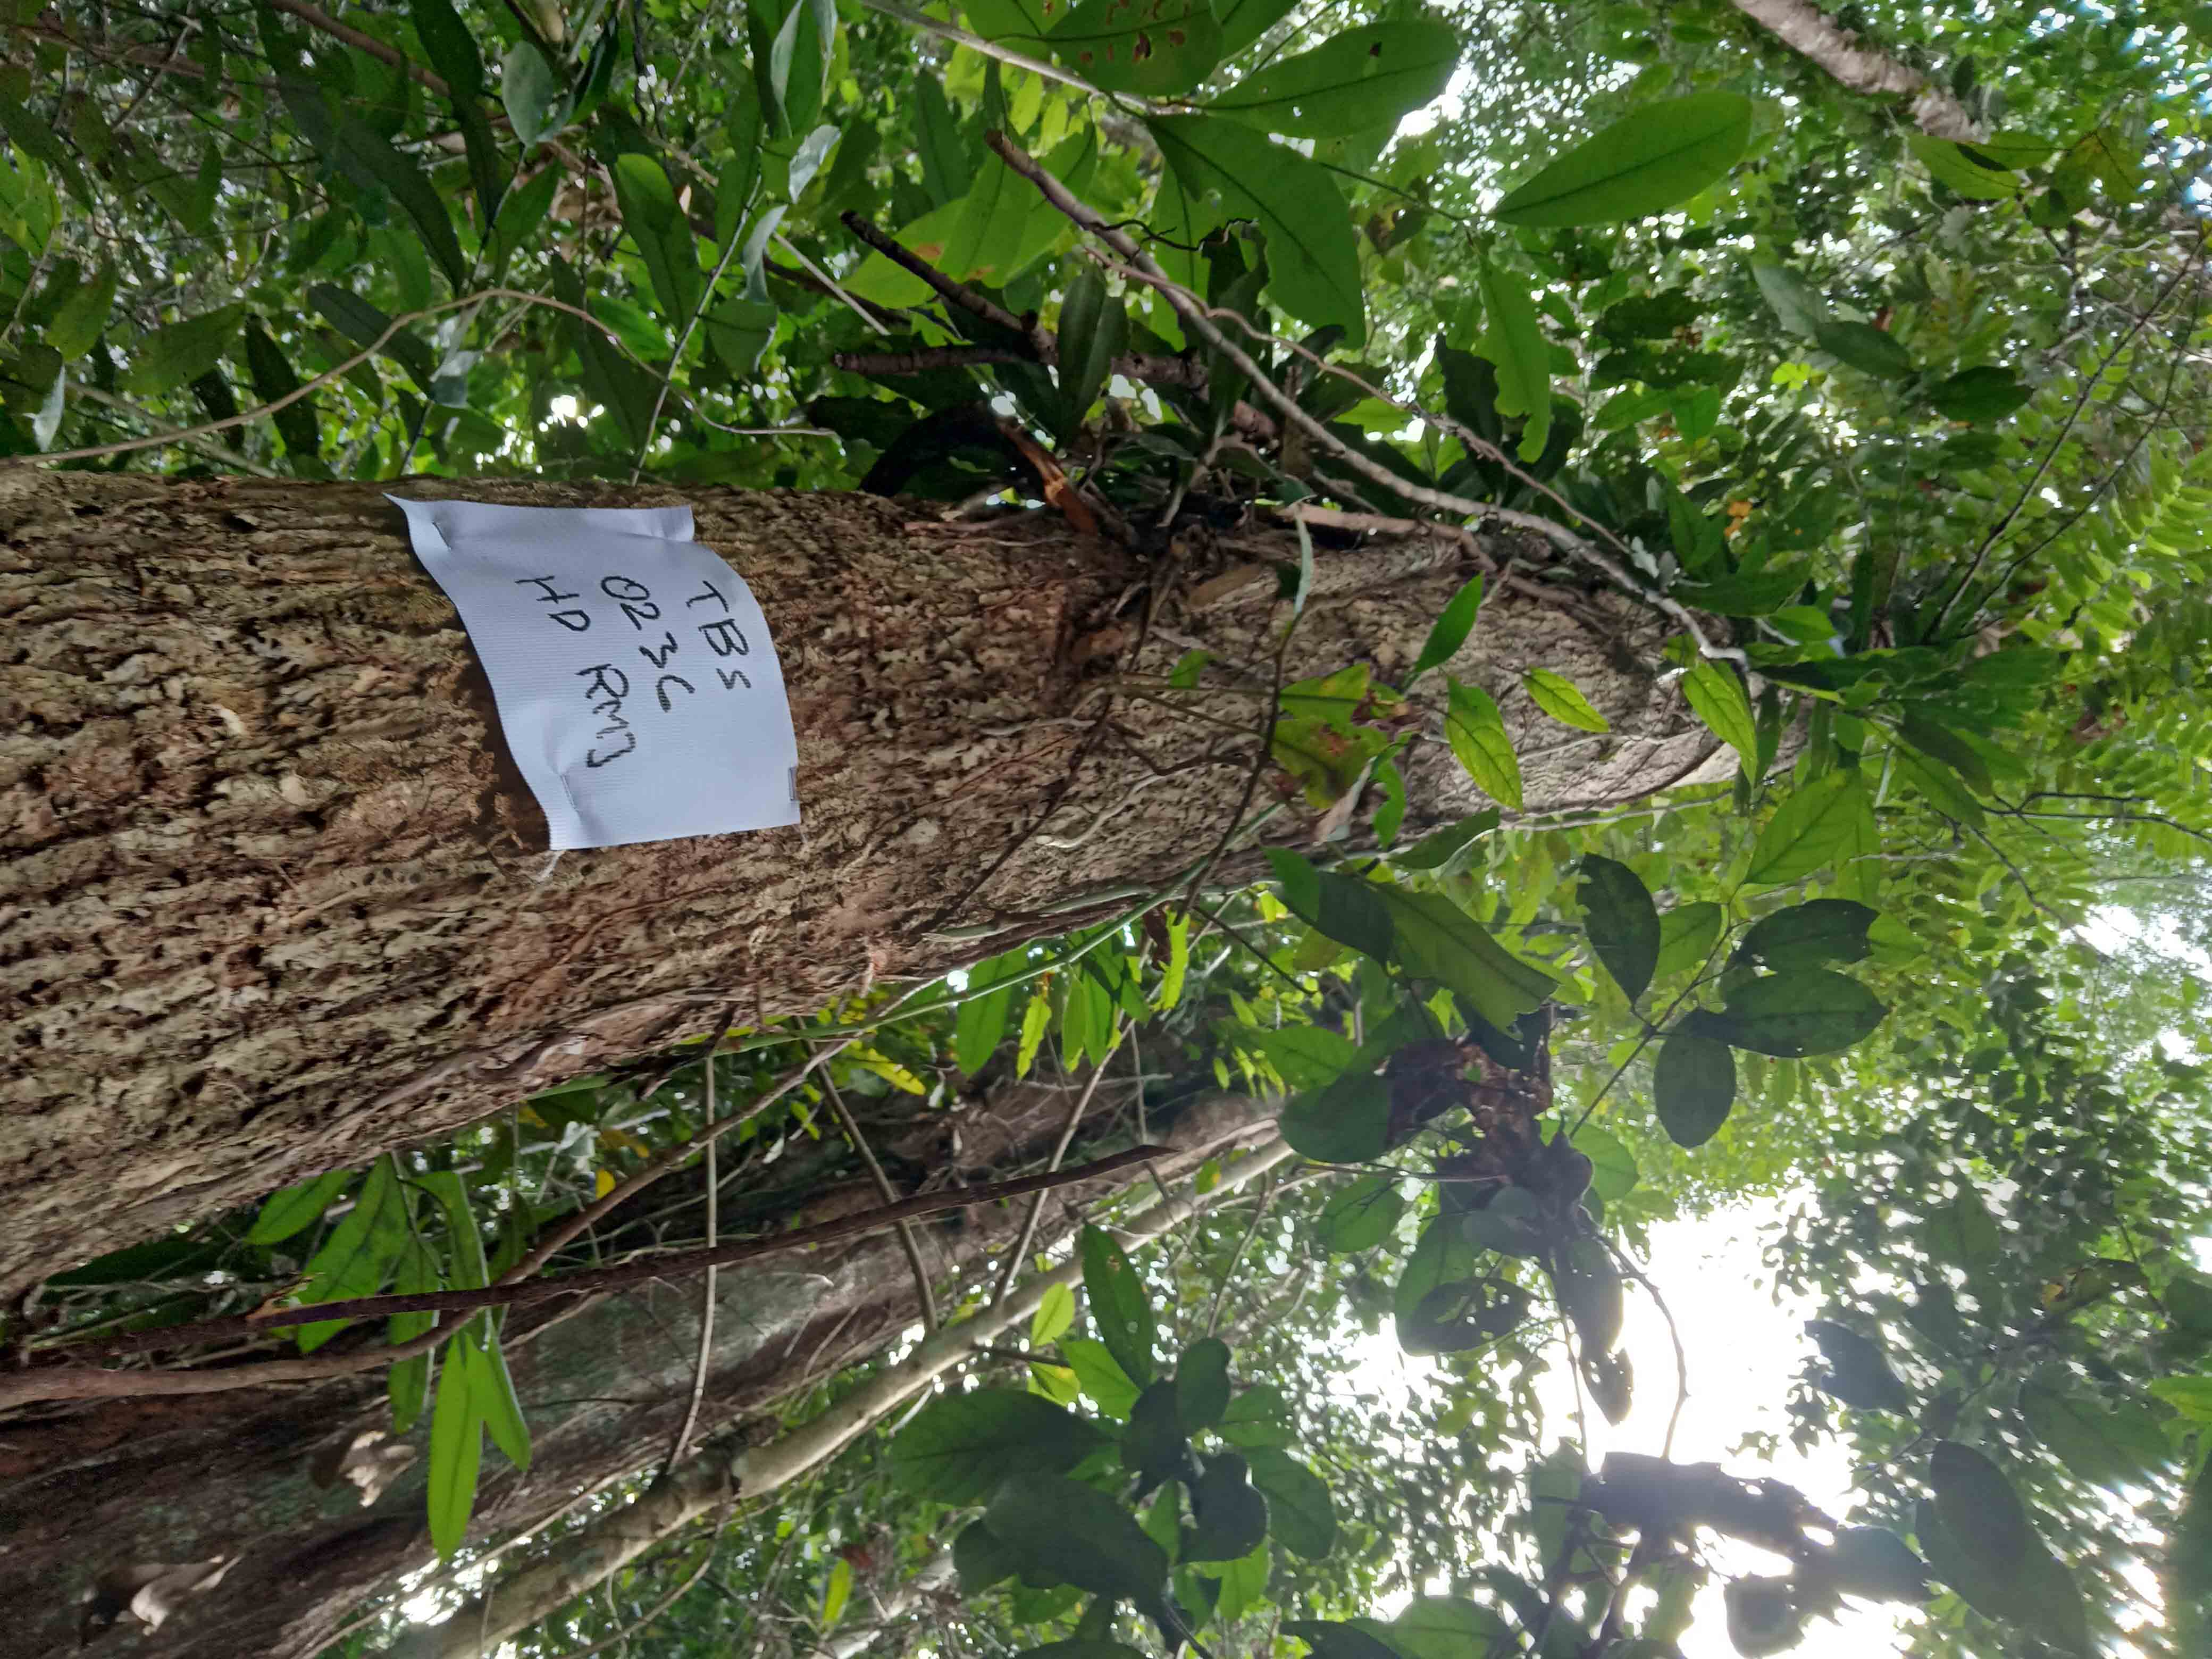 TBS
023C
HD RMD